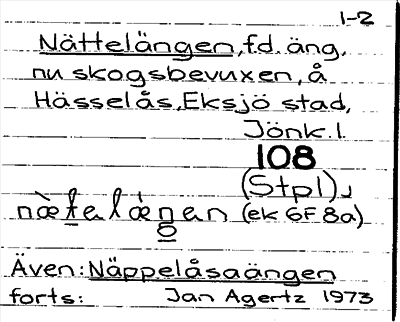 1-2
Nättelängen, f.d. äng,
nu skogsbevuxen, å
Hässelås, Eksjö stad,
Jönk. l.
108
(Stpl)
(ek 6F 8a)
Även: Näppelåsaängen
forts: Jan Agertz 1973